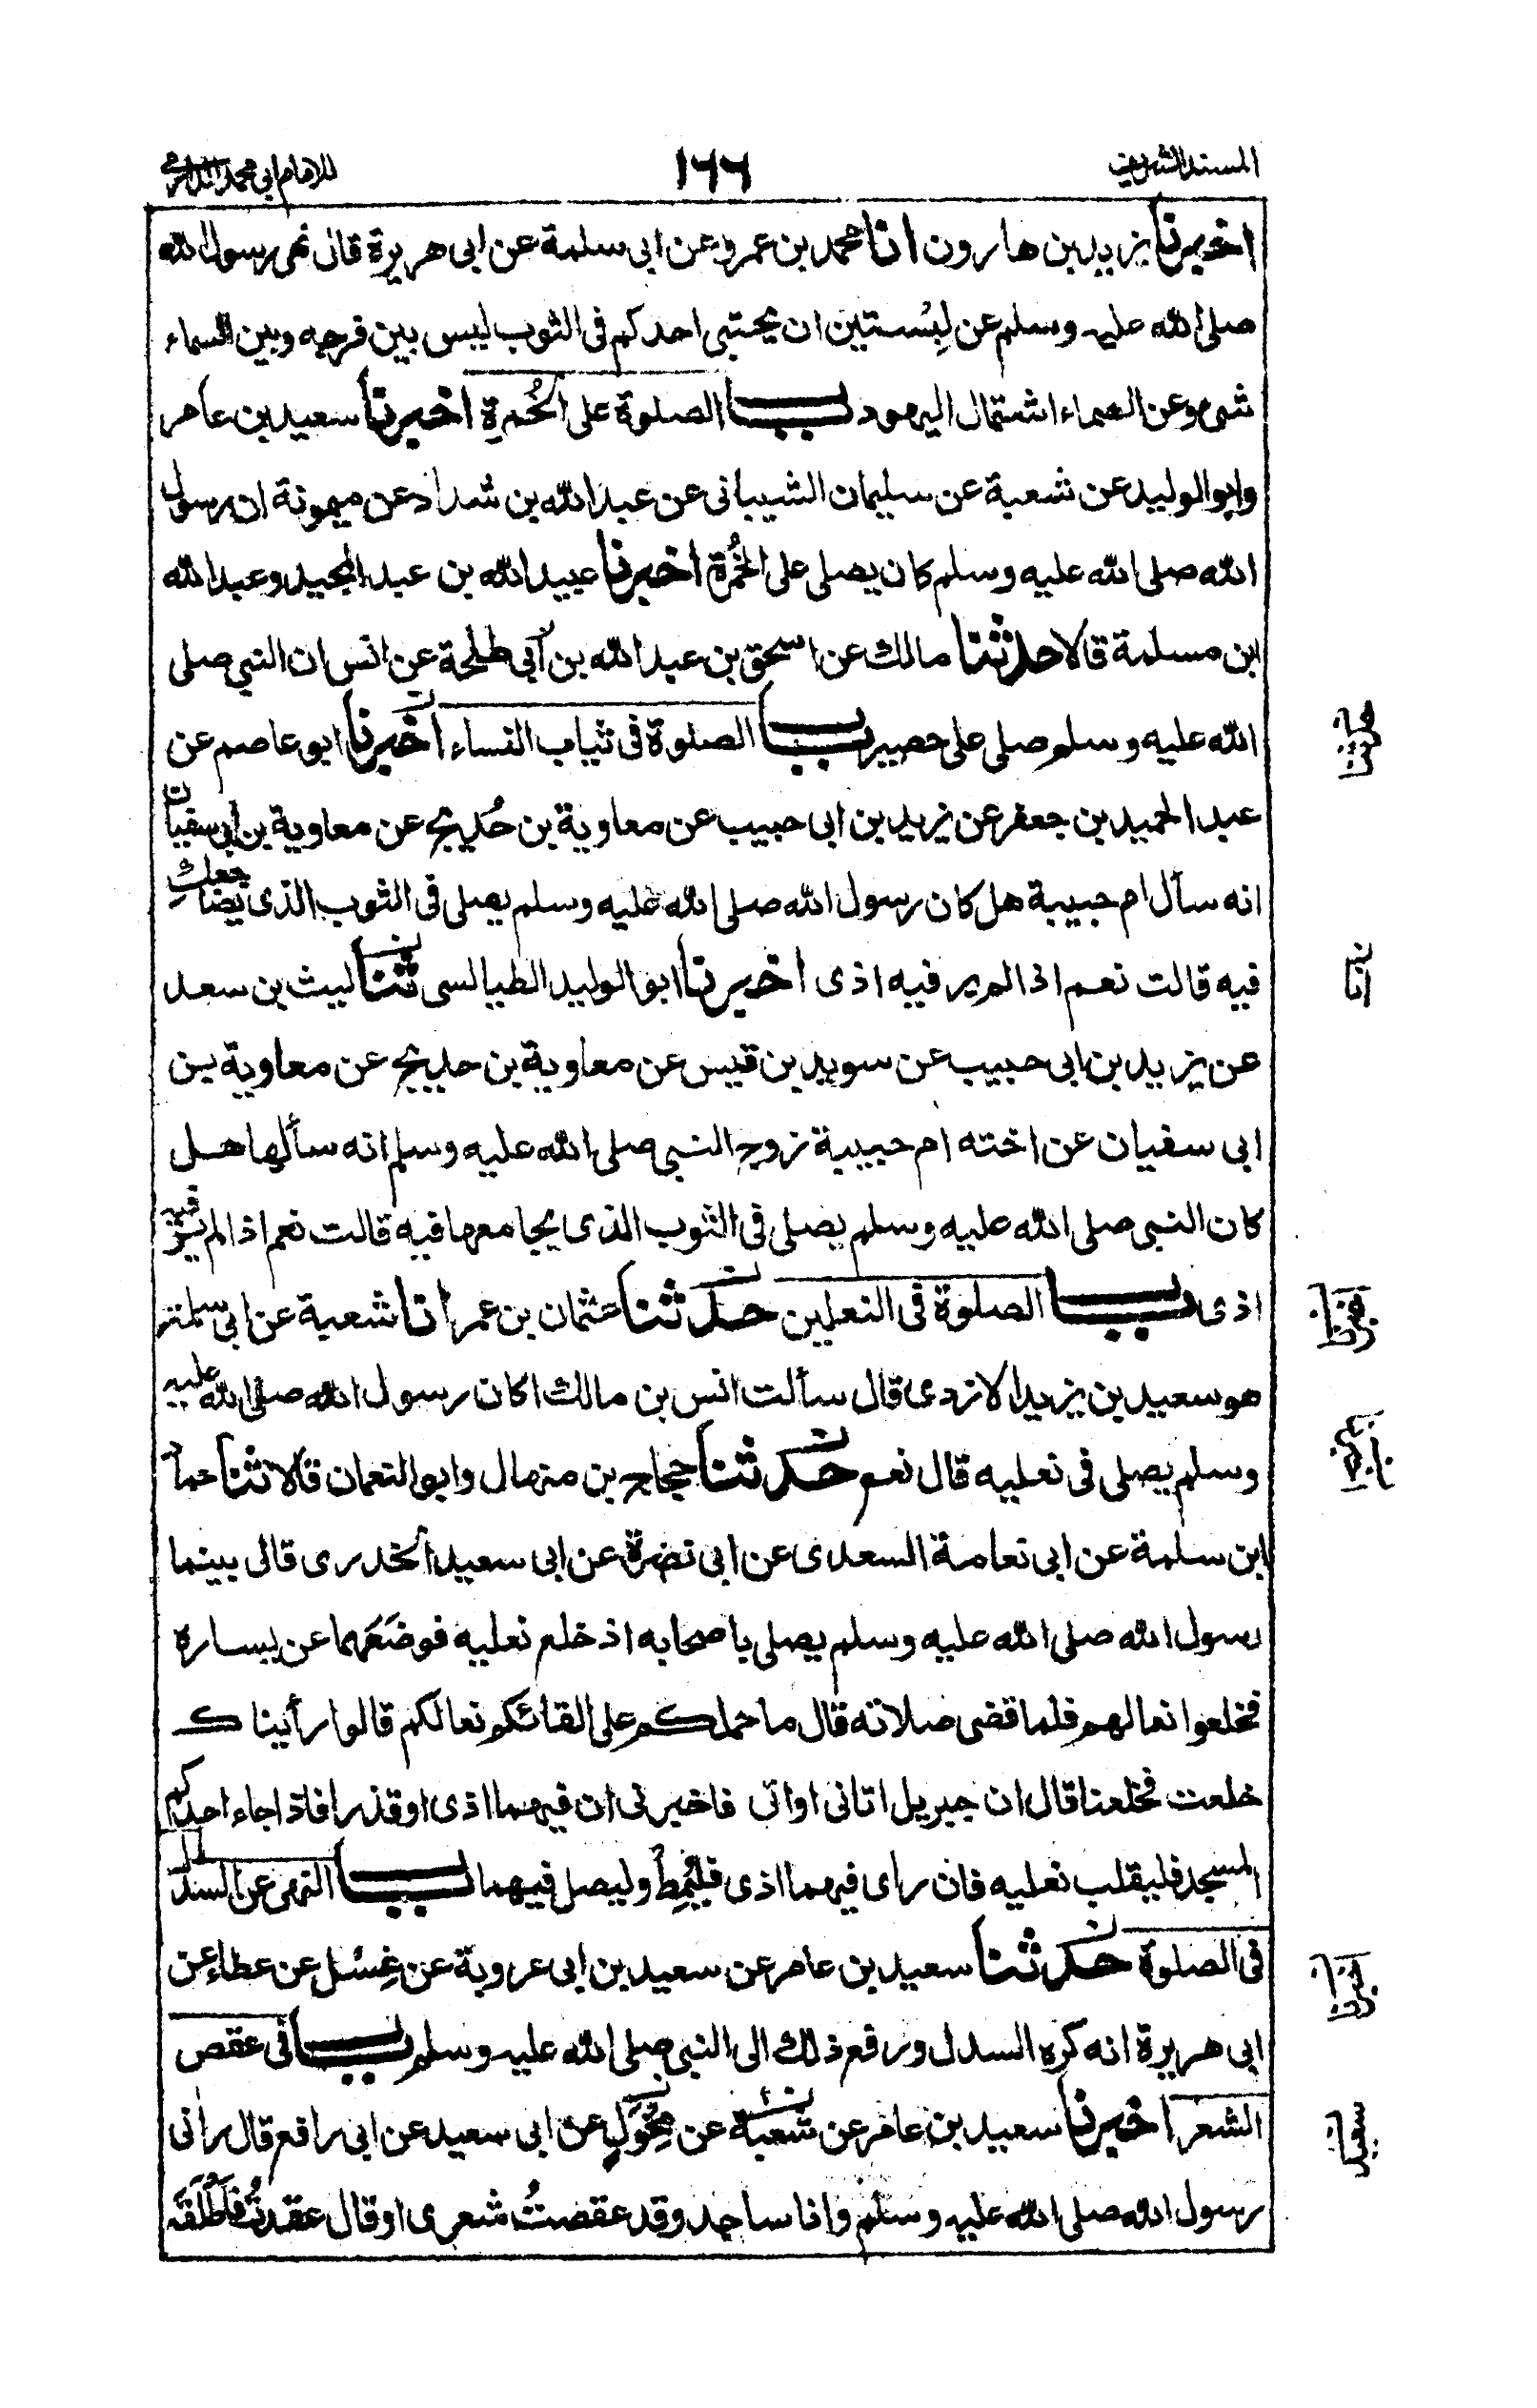 المسند الشريف
١٦٦
للامام ابى محمد الدارمى
اخبرنا يزيد بن هارون انا محمد بن عمرو عن ابى سلمة عن ابى هريرة قال نهى رسول الله
صلى الله عليه وسلم عن لِبْستين ان يحتبى احدكم فى الثوب ليس بين فرجه وبين السماء
شىء وعن الصماء اشتمال اليهود باب الصلوة على الخُمرةِ اخبرنا سعيد بن عامر
وابو الوليد عن شعبة عن سليمان الشيبانى عن عبد الله بن شداد عن ميمونة ان رسول
الله صلى الله عليه وسلم كان يصلى على الخُمرة اخبرنا عبيد الله بن عبد المجيد وعبد الله
ابن مسلمة قالا حدثنا مالك عن اسحق بن عبد الله بن أبي طلحة عن انس ان النبى صلى
الله عليه وسلم صلى على حصير باب الصلوة فى ثياب النساء اخبرنا ابو عاصم عن
حدثنا
عبد الحميد بن جعفر عن يزيد بن ابى حبيب عن معاوية بن حُديج عن معاوية بن أبى سفيان
انه سأل ام حبيبة هل كان رسول الله صلى الله عليه وسلم يصلى فى الثوب الذى يضاجعكِ
فيه قالت نعم اذا لم ير فيه اذى اخبرنا ابو الوليد الطيالسى ثنا ليث بن سعد
انا
عن يزيد بن ابى حبيب عن سويد بن قيس عن معاوية بن حديج عن معاوية بن
ابى سفيان عن اخته ام حبيبة زوج النبى صلى الله عليه وسلم انه سألها هل
كان النبى صلى الله عليه وسلم يصلى فى الثوب الذى يجامعها فيه قالت نعم اذا لم ير فيه
اذى باب الصلوة فى النعلين حدثنا عثمان بن عمر انا شعبة عن ابى سلمة
هو سعيد بن يزيد الازدى قال سألت انس بن مالك اكان رسول الله صلى الله عليه
وسلم يصلى فى نعليه قال نعم حدثنا حجاج بن منهال وابو النعمان قالا ثنا حماد
ابن سلمة عن ابى نعامة السعدى عن ابى نضرة عن ابى سعيد الخدرى قال بينما
رسول الله صلى الله عليه وسلم يصلى باصحابه اذ خلع نعليه فوضَعَهما عن يساره
فخلعوا نعالهم فلما قضى صلاته قال ما حملكم على القائكم نعالكم قالوا رأيناك
خلعت فخلعنا قال ان جبريل اتانى او اتى فاخبرنى ان فيهما اذى او قذرا فاذا جاء احدكم
المسجد فليقلب نعليه فان راى فيهما اذى فليُمِطْ وليصل فيهما باب النهى عن السدل
فى الصلوة حدثنا سعيد بن عامر عن سعيد بن ابى عروبة عن عِسْل عن عطاء عن
اخبرنا
ابى هريرة انه كره السدل ورفع ذلك الى النبى صلى الله عليه وسلم باب فى عقص
الشعر اخبرنا سعيد بن عامر عن شعبة عن مِخْوَلٍ عن ابى سعيد عن ابى رافع قال رانى
سعيد
رسول الله صلى الله عليه وسلم وانا ساجد وقد عقصتُ شعرى او قال عقدتُ فاَطْلَقَه